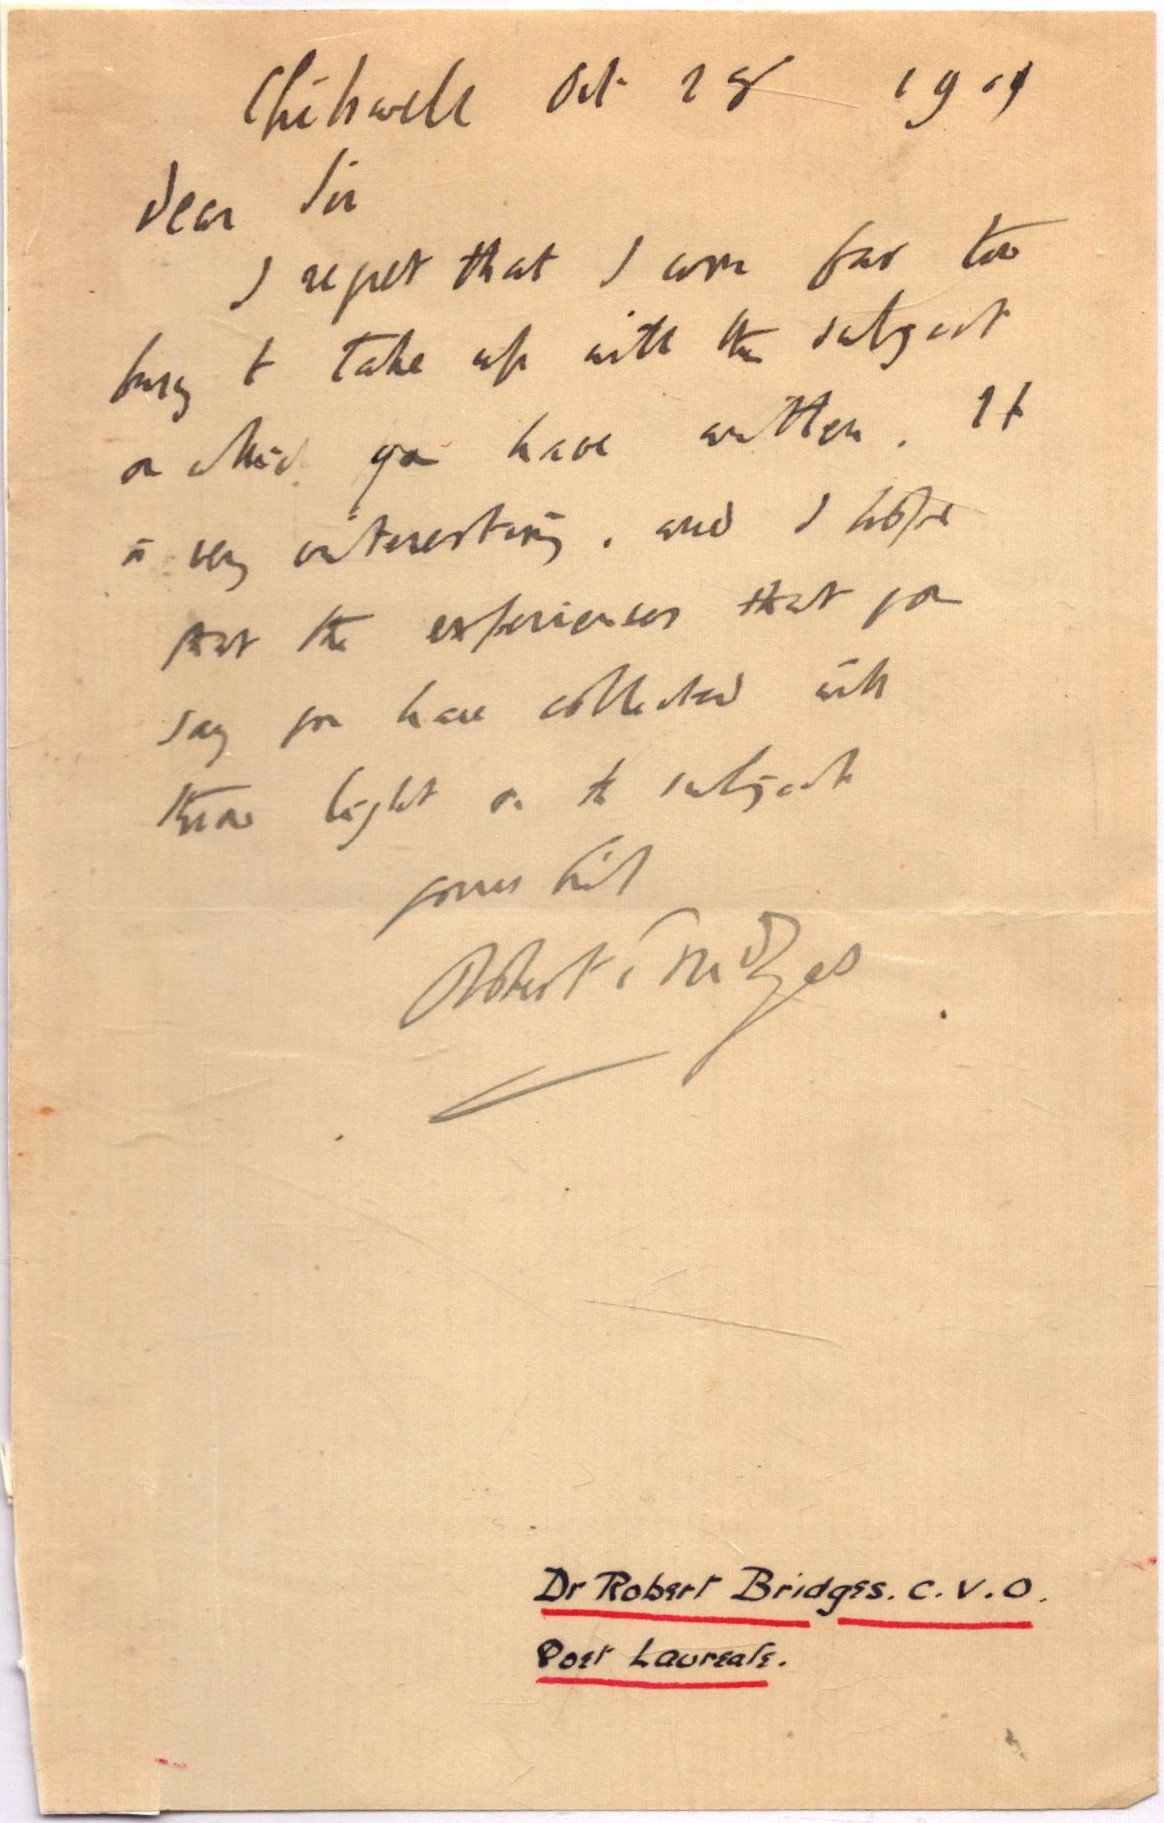 Chilswell Oct 28
Dear Sir
I regret that I am far too
busy to take up with the subject
on which you have written. It
is very interesting, and I hope
that the experiences that you
say you have collected will
throw light on the subject
yours
Robert Bridges
Dr Robert Bridges. C.V.O.
Poet Laureate.